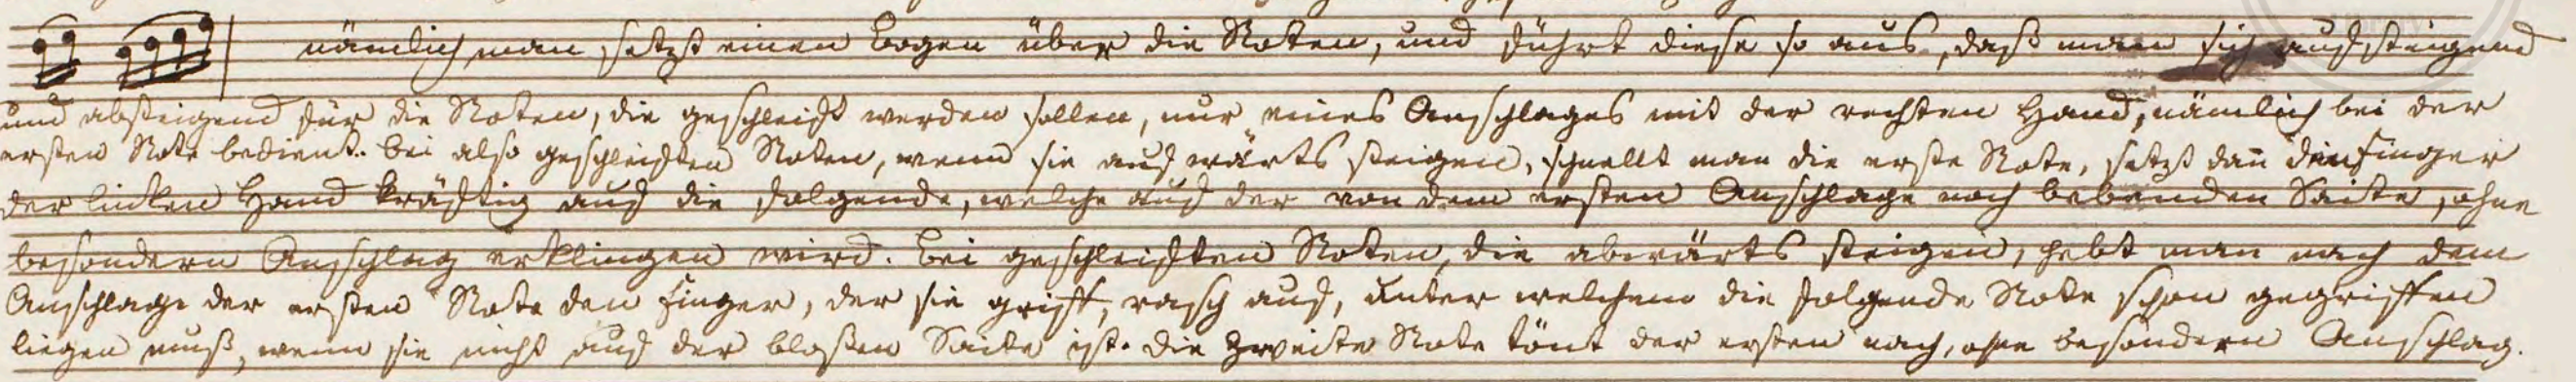 nämlich man setzt einen Bogen über die Noten, und führt diese so aus, daß man sich aufsteigend
und absteigend für die Noten, die geschleift werden sollen, nur eines Anschlages mit der rechten Hand, nämlich bei der
ersten Note bedient. Bei also geschleiften Noten, wenn sie aufwärts steigen, schnellt man die erste Note, setzt dan̄ den Finger
der linken Hand kräftig auf die folgende, welche auf der von dem ersten Anschlage noch bebenden Saite, ohne
besondern Anschlag erklingen wird. Bei geschleiften Noten, die abwärts steigen, hebt man nach dem
Anschlage der ersten Note den Finger, der sie griff, rasch auf, unter welchem die folgende Note schon gegriffen
liegen muß, wenn sie nicht auf der bloßen Saite ist. Die zweite Note tönt der ersten nach, ohne besondern Anschlag.